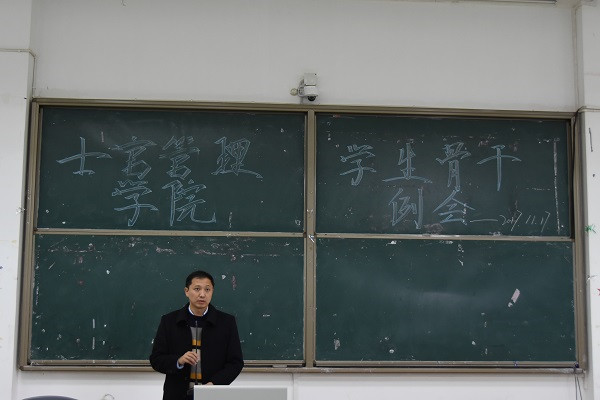 士官管理
学院
学生骨干
例会—2017.11.17